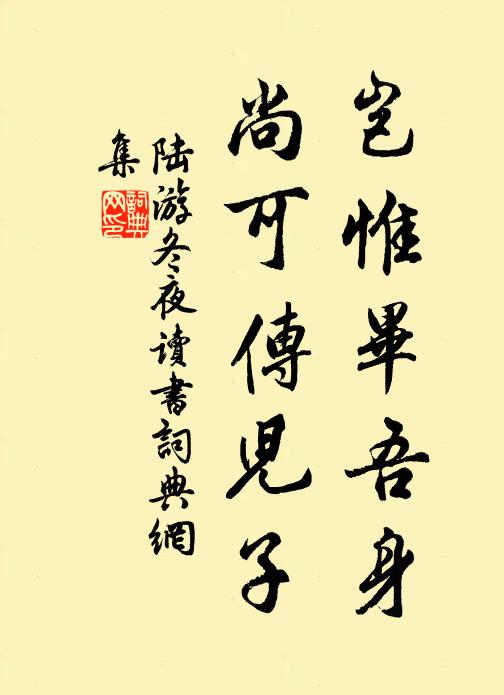 豈惟畢吾身
尚可傳兒子
陸游冬夜讀書詞典網
集
詞典
网印